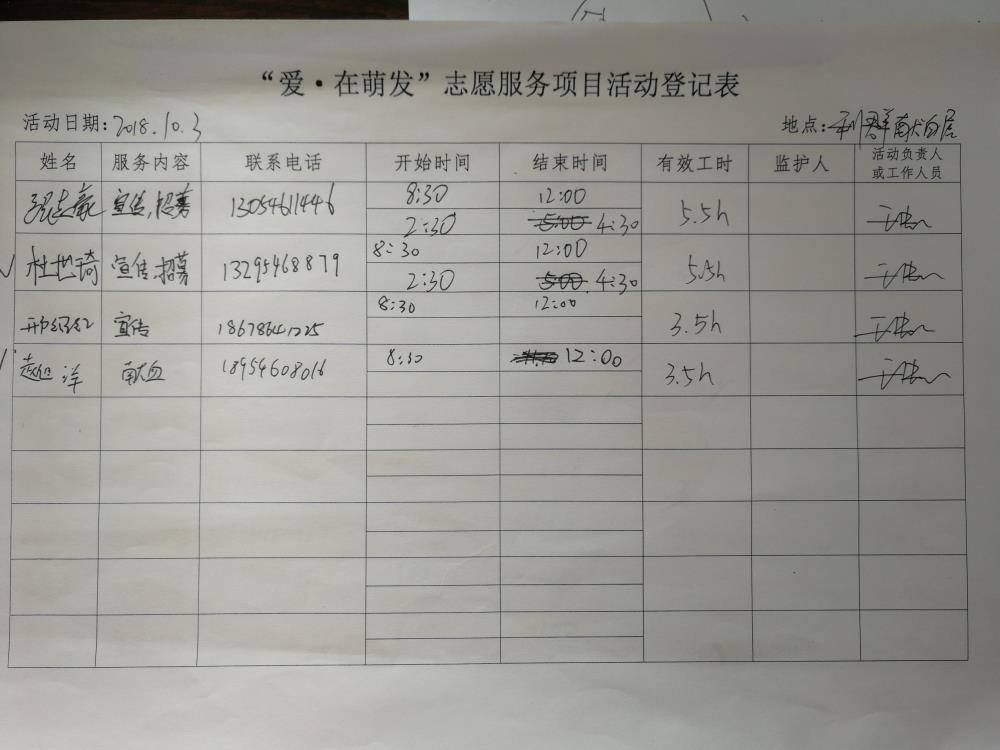 “爱·在萌发”志愿服务项目活动登记表
活动日期：2018.10.3 地点：利群献血屋
姓名 服务内容 联系电话 开始时间 结束时间 有效工时 监护人 活动负责人或工作人员
宣传,招募 13054611446 8:30 12:00 5.5h
2:30 4:30
杜世琦 宣传,招募 13295468879 8:30 12:00 5.5h
2:30 4:30
宣传 18678641225 8:30 12:00 3.5h
赵恒洋 献血 18954608016 8:30 12:00 3.5h